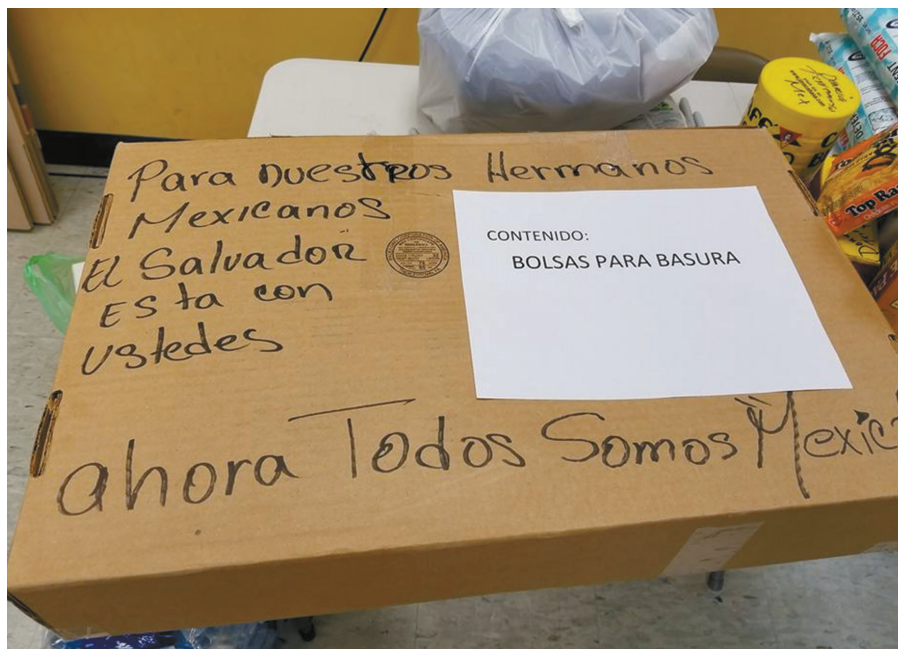 Para nuestros Hermanos
Mexicanos
El Salvador
Esta con
ustedes
CONTENIDO:
BOLSAS PARA BASURA
ahora Todos Somos Mexic
Top Ra